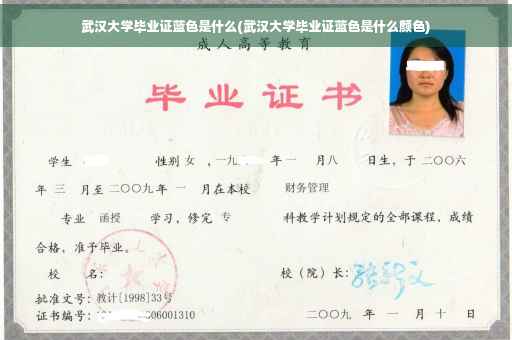 武汉大学毕业证蓝色是什么(武汉大学毕业证蓝色是什么颜色)
成人高等教育
毕业证书
学生 性别 女 ，一九 年 一 月八 日生，于 二〇〇六
年 三 月至 二〇〇九 年 一 月在本校 财务管理
专业 函授 学习，修完 专 科教学计划规定的全部课程，成绩
合格，准予毕业。
校 名： 校（院）长：
批准文号：教计[1998]33号
证书编号： 06001310 二〇〇九 年 一 月 十 日